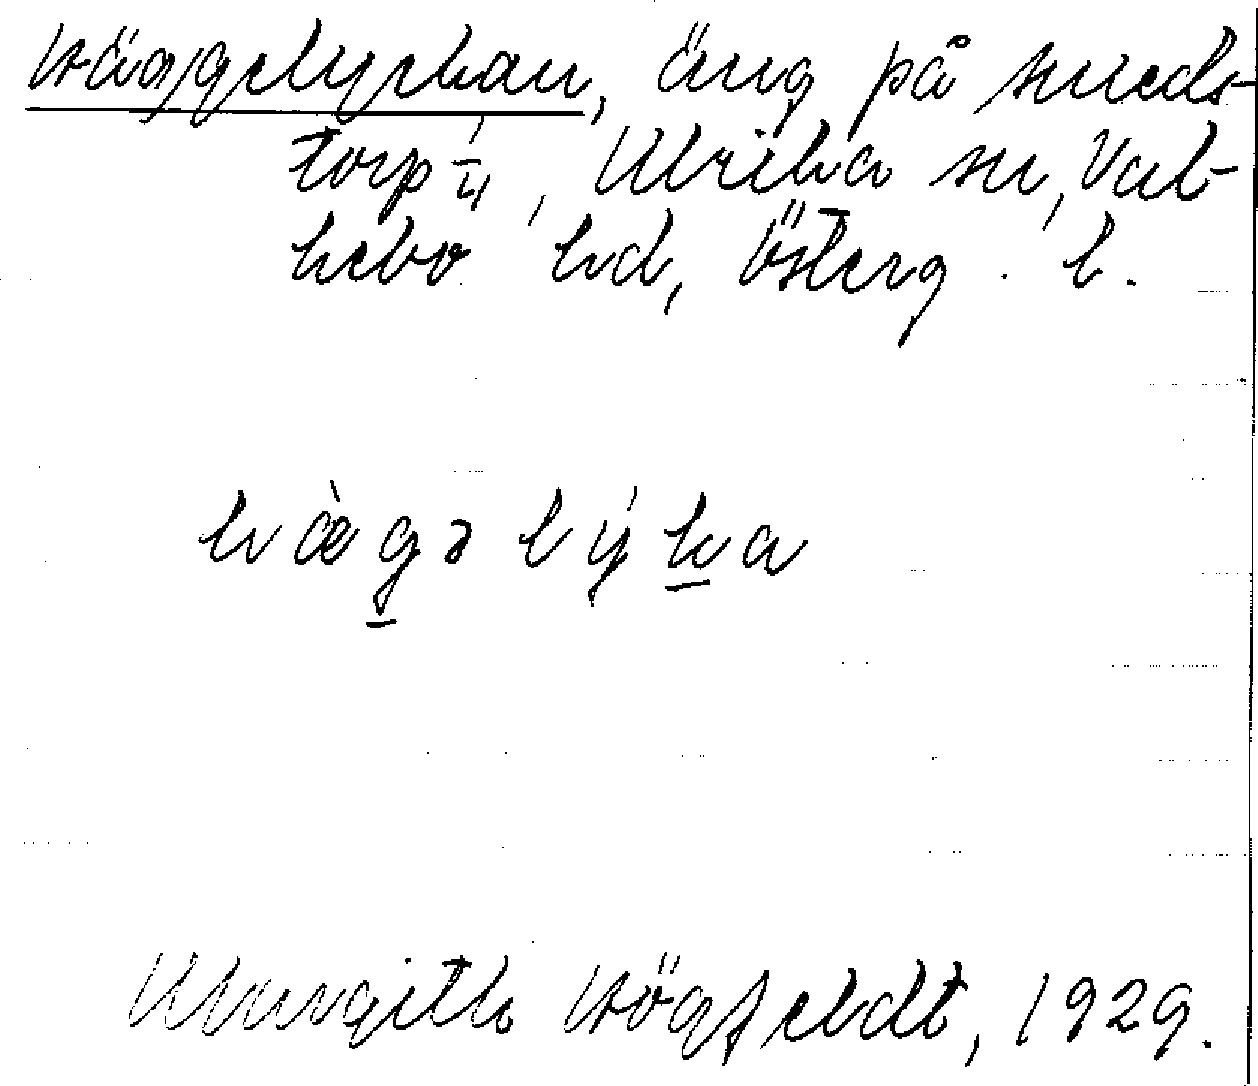 Häggelyckan, äng på Smeds-
torp 1/4, Ulrika sn, Val-
kebo hd, Österg. l.
hàgəlýka
Margith Högfeldt, 1929.